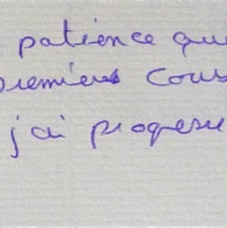 patience que
premiers cours
j'ai progressé